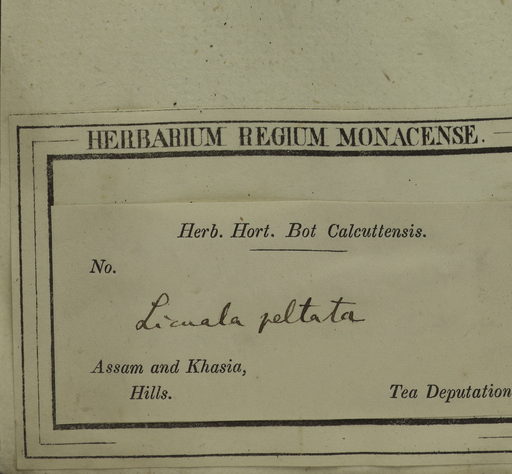 HERBARIUM REGIUM MONACENSE.
Herb. Hort. Bot Calcuttensis.
No.
Licuala peltata
Assam and Khasia,
Hills.
Tea Deputation